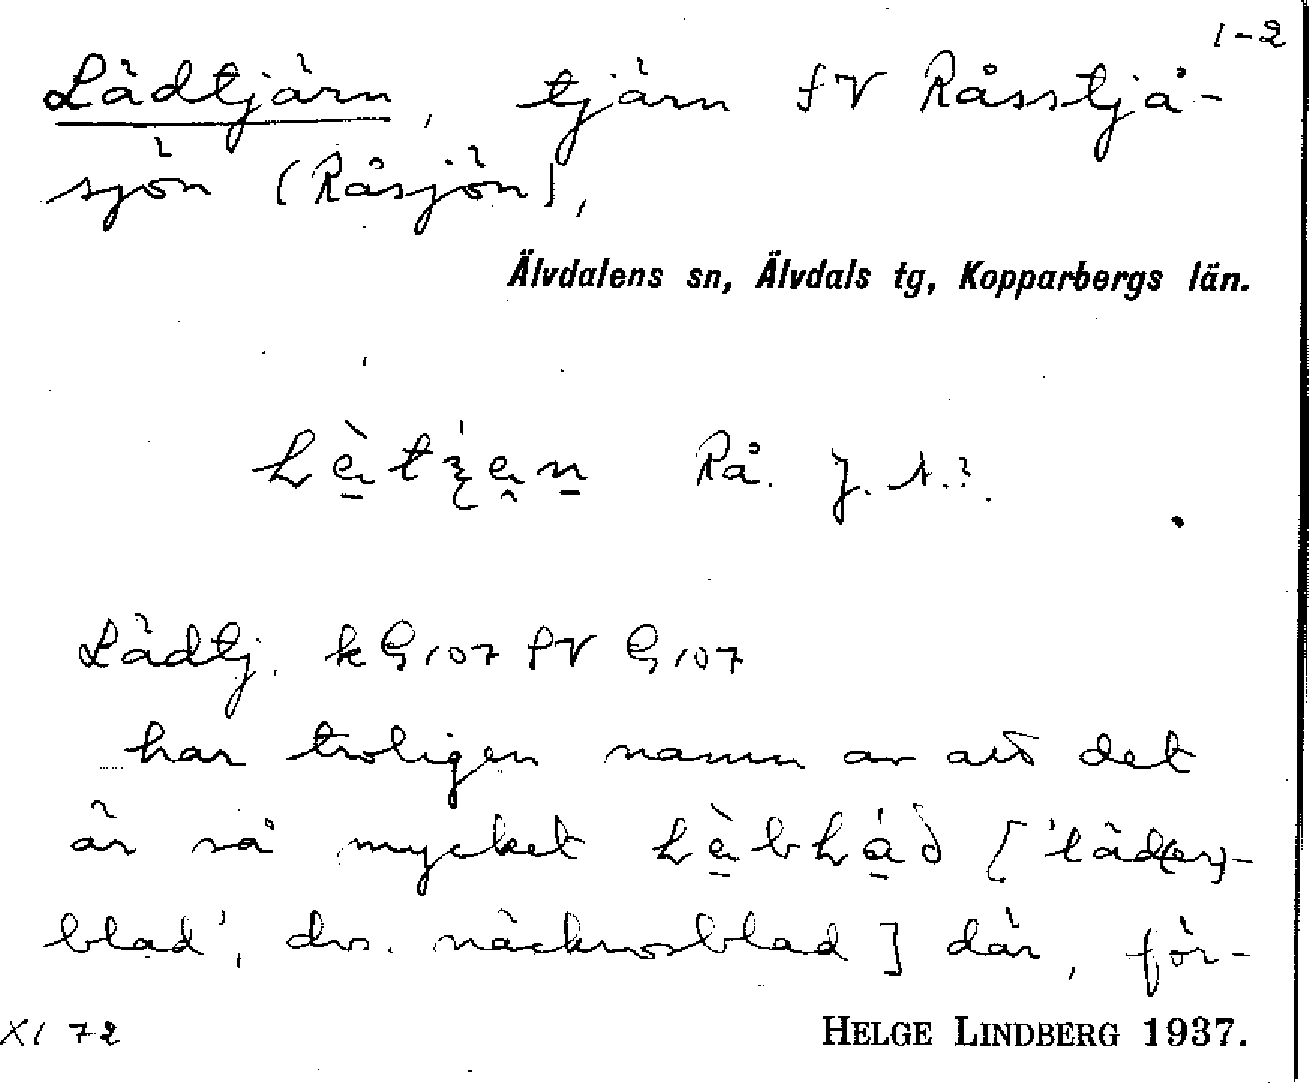 1-2
Lädtjärn, tjärn f V Råsstjå-
sjön (Råsjön),
Älvdalens sn, Älvdals tg, Kopparbergs län.
Rå.
Lädtj. k G 107 f V G 107
har troligen namn av att det
är så mycket ['läd(er)-
blad', dvs. näckrosblad] där, för-
XI 72
HELGE LINDBERG 1937.